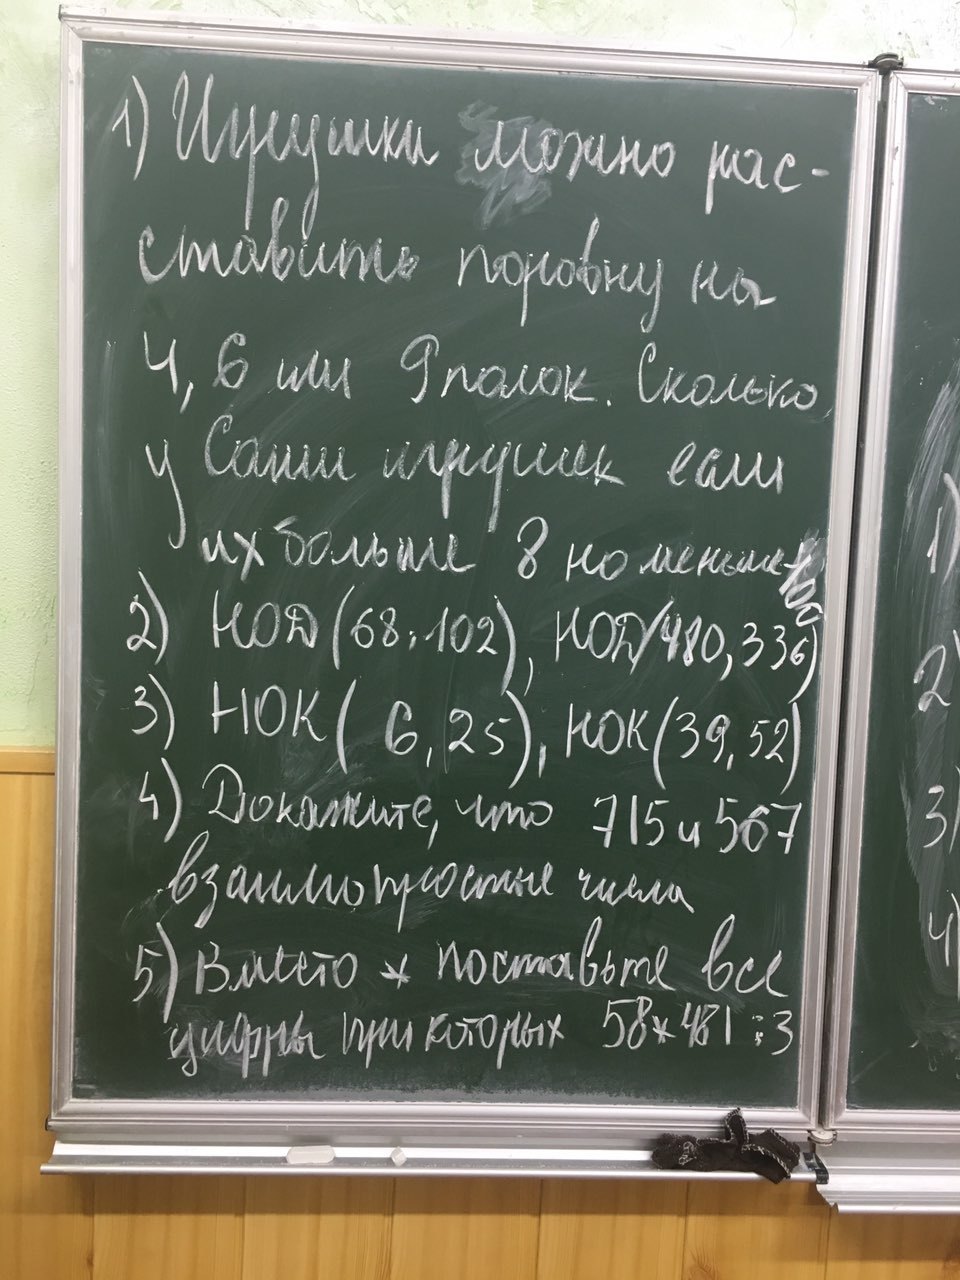 1) Игрушки можно рас-
ставить поровну на
4, 6 или 9 полок. Сколько
у Саши игрушек если
их больше 8 но меньше 100
2) НОД (68, 102), НОД (480, 336)
3) НОК ( 6, 25), НОК (39, 52)
4) Докажите, что 715 и 567
взаимо простые числа
5) Вместо * поставьте все
цифры при которых 58*481 ⋮ 3
1)
2)
3)
4)